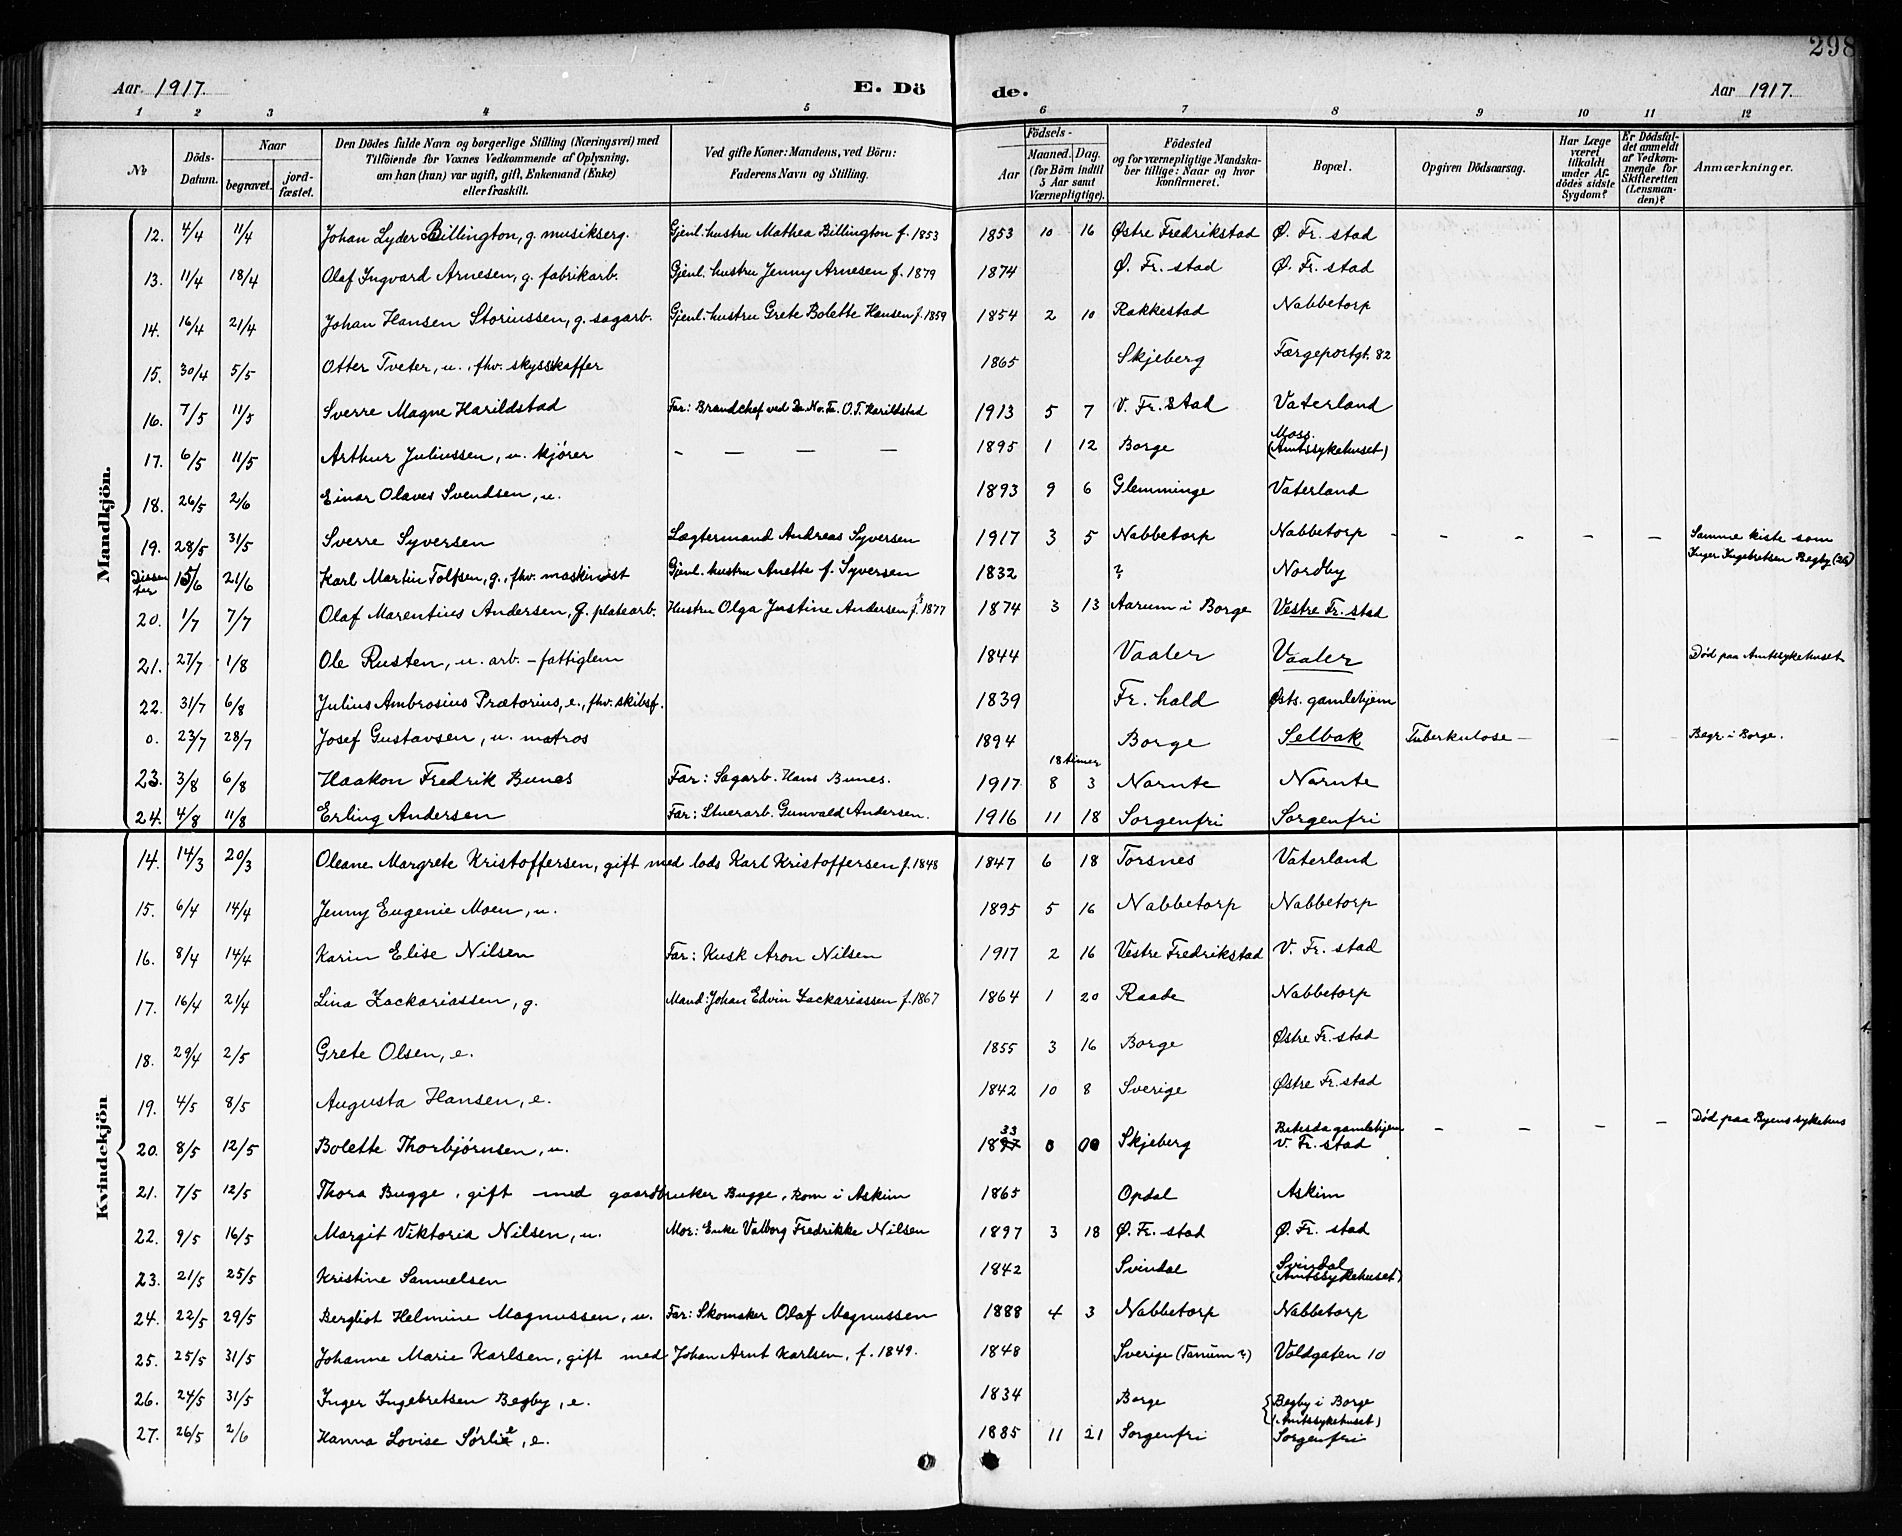 298
Aar. 1917. E. Dö de. Aar 1917.
1 2 3 4 5 6 7 8 9 10 11 12
No
Döds-Datum.
Naar begravet. jordfæstet.
Den Dödes fulde Navn og borgerlige Stilling (Næringsvei) med Tilföiende for Voxnes Vedkommende af Oplysning, om han (hun) var ugift, gift, Enkemand (Enke) eller fraskilt.
Ved gifte Koner: Mandens, ved Börn: Faderens Navn og Stilling.
Födsels- Aar Maaned. Dag. (for Börn indtil 5 Aar samt Værnepligtige).
Födested og for værnepligtige Mandskaber tillige: Naar og hvor konfirmeret.
Bopæl.
Opgiven Dödsaarsag.
Har Læge været tilkaldt under Afdödes sidste Sygdom?
Er Dödsfaldet anmeldt af Vedkommende for Skifteretten (Lensmanden)?
Anmærkninger.
Mandkjön.
12. 4/4 11/4 Johan Lyder Billington, g. musikserg. Gjenl. hustru Mathea Billington f. 1853 1853 10 16 Østre Fredrikstad Ø. Fr. stad
13. 11/4 18/4 Olaf Ingvard Arnesen, g. fabrikarb. Gjenl. hustru Jenny Arnesen f. 1879 1874 Ø. Fr. stad Ø. Fr. stad
14. 16/4 21/4 Johan Hansen Storiussen, g. sagarb. Gjenl. hustru Grete Bolette Hansen f. 1859 1854 2 10 Rakkestad Nabbetorp
15. 30/4 5/5 Otter Tveter, u., fhv. skysskaffer 1865 Skjeberg Færgeportgt. 82
16. 7/5 11/5 Sverre Magne Harildstad Far: Brandchef ved O. T. Harildstad 1913 5 7 V. Fr. stad Vaterland
17. 6/5 11/5 Arthur Juliussen, u. kjører - - - - 1895 1 12 Borge Moss. (Amtssykehuset)
18. 26/5 2/6 Einar Olaves Svendsen, u. 1893 9 6 Glemminge Vaterland
19. 28/5 31/5 Sverre Syversen Lægtermand Andreas Syversen 1917 3 5 Nabbetorp Nabbetorp - - - - - Samme kiste som Inger Ingebretsen Begby (26)
Dissenter 15/6 21/6 Karl Martin Tolfsen, g., fhv. maskinist Gjenl. hustru Anette f. Syversen 1832 ? Nordby
20. 1/7 7/7 Olaf Marentius Andersen, g. platearb. Hustru Olga Justine Andersen f. 1877 1874 3 13 Aarum i Borge Vestre Fr. stad
21. 27/7 1/8 Ole Rusten, u. arb. - fattiglem 1844 Vaaler Vaaler Død paa Amtssykehuset
22. 31/7 6/8 Julius Ambrosius Prætorius, e., fhv. skibsf. 1839 Fr. hald Østs. gamlehjem
0. 23/7 28/7 Josef Gustavsen, u. matros 1894 Borge Selbak Tuberkulose - - - Begr. i Borge.
23. 3/8 6/8 Haakon Fredrik Bunes Far: Sagarb. Hans Bunes. 1917 18 timer 8 3 Narnte Narnte
24. 4/8 11/8 Erling Andersen Far: Stuerarb. Gunvald Andersen. 1916 11 18 Sorgenfri Sorgenfri
Kvindekjön
14. 14/3 20/3 Oleane Margrete Kristoffersen, gift med lods Karl Kristoffersen f. 1848 1847 6 18 Torsnes Vaterland
15. 6/4 14/4 Jenny Eugenie Moen, u. 1895 5 16 Nabbetorp Nabbetorp
16. 8/4 14/4 Karin Elise Nilsen Far: Kusk Aron Nilsen 1917 2 16 Vestre Fredrikstad V. Fr. stad
17. 16/4 21/4 Lina Zackariassen, g. Mand: Johan Edvin Zackariassen f. 1867 1864 1 20 Raade Nabbetorp
18. 29/4 2/5 Grete Olsen, e. 1855 3 16 Borge Østre Fr. stad
19. 4/5 8/5 Augusta Hansen, e. 1842 10 8 Sverige Østre Fr. stad
20. 8/5 12/5 Bolette Thorbjørnsen, u. 1833 0 00 Skjeberg Betesda gamlehjem V. Fr. stad - - - - Død paa Byens sykehus
21. 7/5 12/5 Thora Bugge, gift med gaardbruker Bugge, kom i Askim 1865 Opdal Askim
22. 9/5 16/5 Margit Viktoria Nilsen, u. Mor: Enke Valborg Fredrikke Nilsen 1897 3 18 Ø. Fr. stad Ø. Fr. stad
23. 21/5 25/5 Kristine Samuelsen 1842 Svindal Svindal (Amtssykehuset)
24. 22/5 29/5 Bergliot Helmine Magnussen, u. Far: Skomaker Olaf Magnussen 1888 4 3 Nabbetorp Nabbetorp
25. 25/5 31/5 Johanne Marie Karlsen, gift med Johan Arnt Karlsen, f. 1849. 1848 Sverige (Tanum?) Voldgaten 10
26. 24/5 31/5 Inger Ingebretsen Begby, e. 1834 Borge Begby i Borge (Amtssykehuset)
27. 26/5 2/6 Hanna Lovise Sørlie, e. 1885 11 21 Sorgenfri Sorgenfri